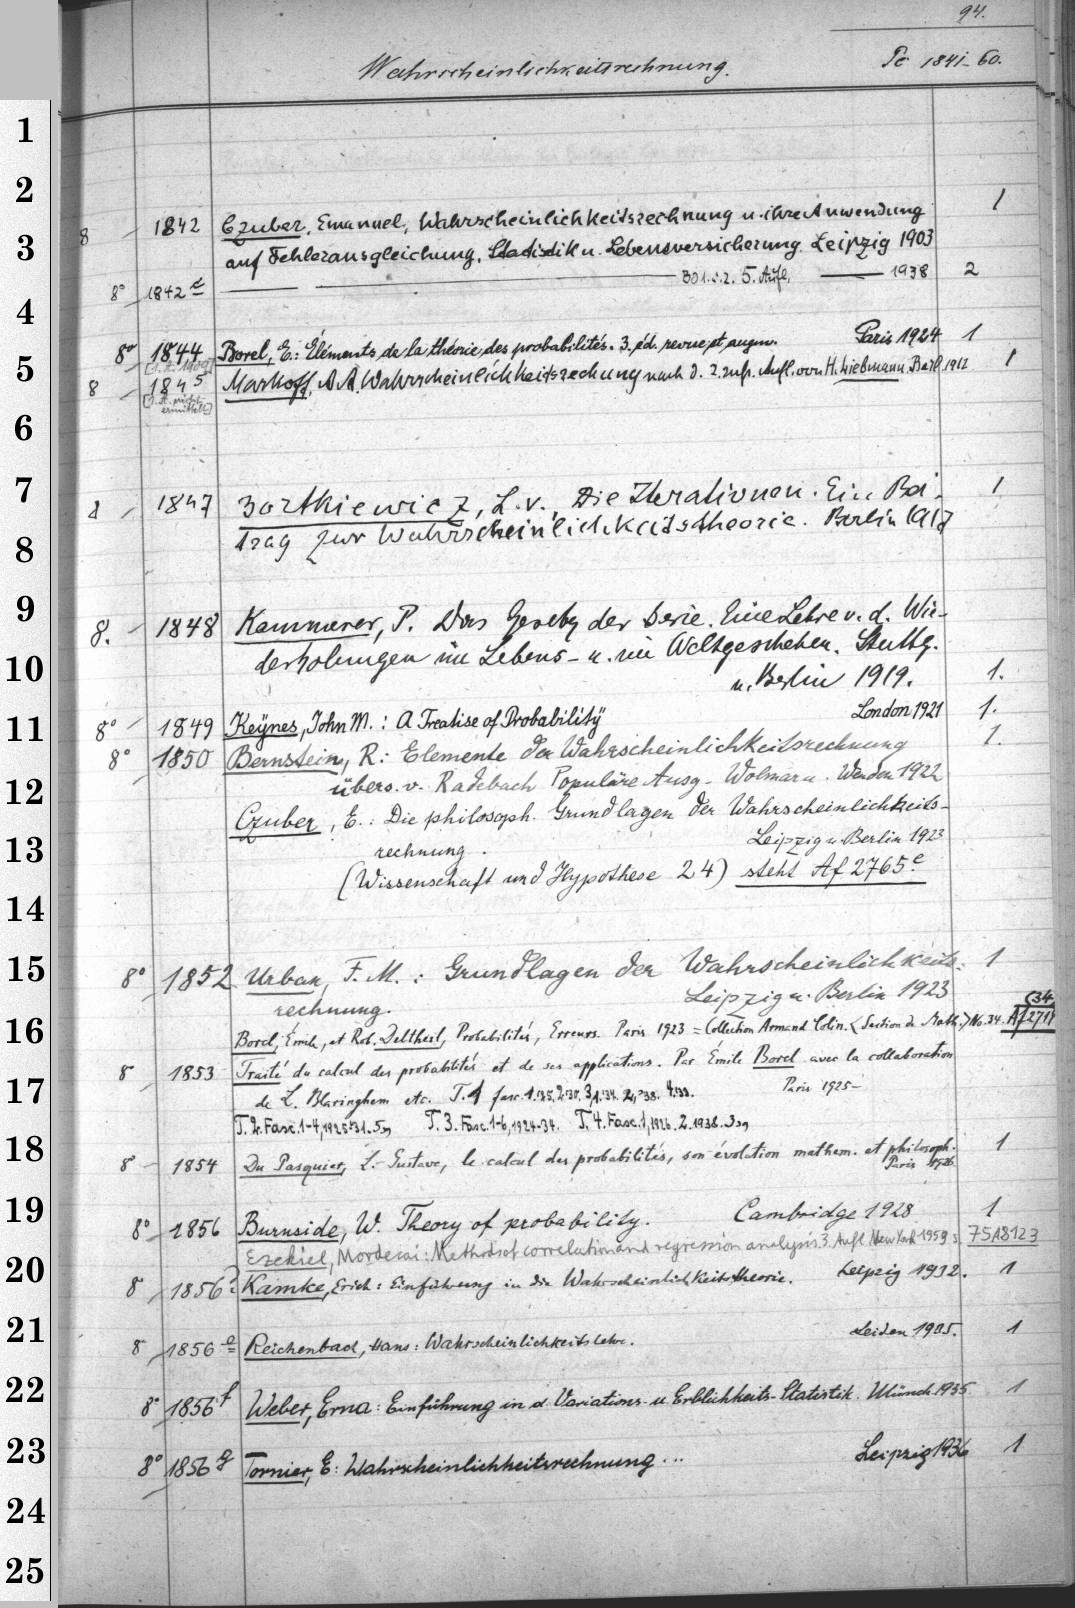 94.
Wahrscheinlichkeitsrechnung.
Pc 1841-60.
1
2
8 1842 Czuber, Emanuel, Wahrscheinlichkeitsrechnung u. ihre Anwendung 1
3
auf Fehlerausgleichung, Statistik u. Lebensversicherung. Leipzig 1903
8° 1842 c 5. Aufl. 1938 2
4
8° 1844 Borel, E.: Éléments de la théorie des probabilités. 3. éd. revue et augm. Paris 1924 1
5
8 1845 Markoff, A. A. Wahrscheinlichkeitsrechnung nach d. 2. russ. Aufl. von H. Liebmann. Berl. 1912 1
[J. A. nicht ermittelt]
6
7
8 1847 Bortkiewicz, L. v., Die Iterationen. Ein Bei- 1
trag zur Wahrscheinlichkeitstheorie. Berlin 1917
8
9
8. 1848 Kammerer, P. Das Gesetz der Serie. Eine Lehre v. d. Wie-
derholungen im Lebens- u. im Weltgeschehen. Stuttg.
10
u. Berlin 1919. 1.
11
8° 1849 Keynes, John M.: A Treatise of Probability London 1921 1.
8° 1850 Bernstein, R: Elemente der Wahrscheinlichkeitsrechnung 1.
12
übers. v. Radebach Populäre Ausg. Wolmar u. Wenden 1922
Czuber, E.: Die philosoph. Grundlagen der Wahrscheinlichkeits-
13
rechnung. Leipzig u. Berlin 1923
(Wissenschaft und Hypothese 24) steht Af 2765 e
14
15
8° 1852 Urban, F. M.: Grundlagen der Wahrscheinlichkeits- 1
rechnung. Leipzig u. Berlin 1923
16
Borel, Émile, et Rob. Deltheil, Probabilités, Erreurs. Paris 1923 = Collection Armand Colin. (Section de Math.) No. 34. Af 2711 (34
8 1853 Traité du calcul des probabilités et de ses applications. Par Émile Borel avec la collaboration
17
de L. Blaringhem etc. T. 1 fasc. Paris 1925-
T. 2. Fasc. 1-4, 1925-31. T. 3. Fasc. 1-6, 1924-34. T. 4. Fasc. 1, 1926. 2. 1938.
18
8 1854 Du Pasquier, L.-Gustave, le calcul des probabilités, son évolution mathem. et philosoph. 1
Paris 1926
19
8° 1856 Burnside, W. Theory of probability. Cambridge 1928 1
Ezekiel, Mordecai: Methods of correlation and regression analysis. 3. Aufl. New York 1959 s. 75A8123
20
8 1856 Kamke, Erich: Einführung in die Wahrscheinlichkeitstheorie. Leipzig 1932. 1
21
8 1856 e Reichenbach, Hans: Wahrscheinlichkeitslehre. Leiden 1935. 1
22
8° 1856 f Weber, Erna: Einführung in d. Variations- u. Erblichkeits-Statistik. Münch. 1935 1
23
8° 1856 g Tornier, E: Wahrscheinlichkeitsrechnung ... Leipzig 1936 1
24
25